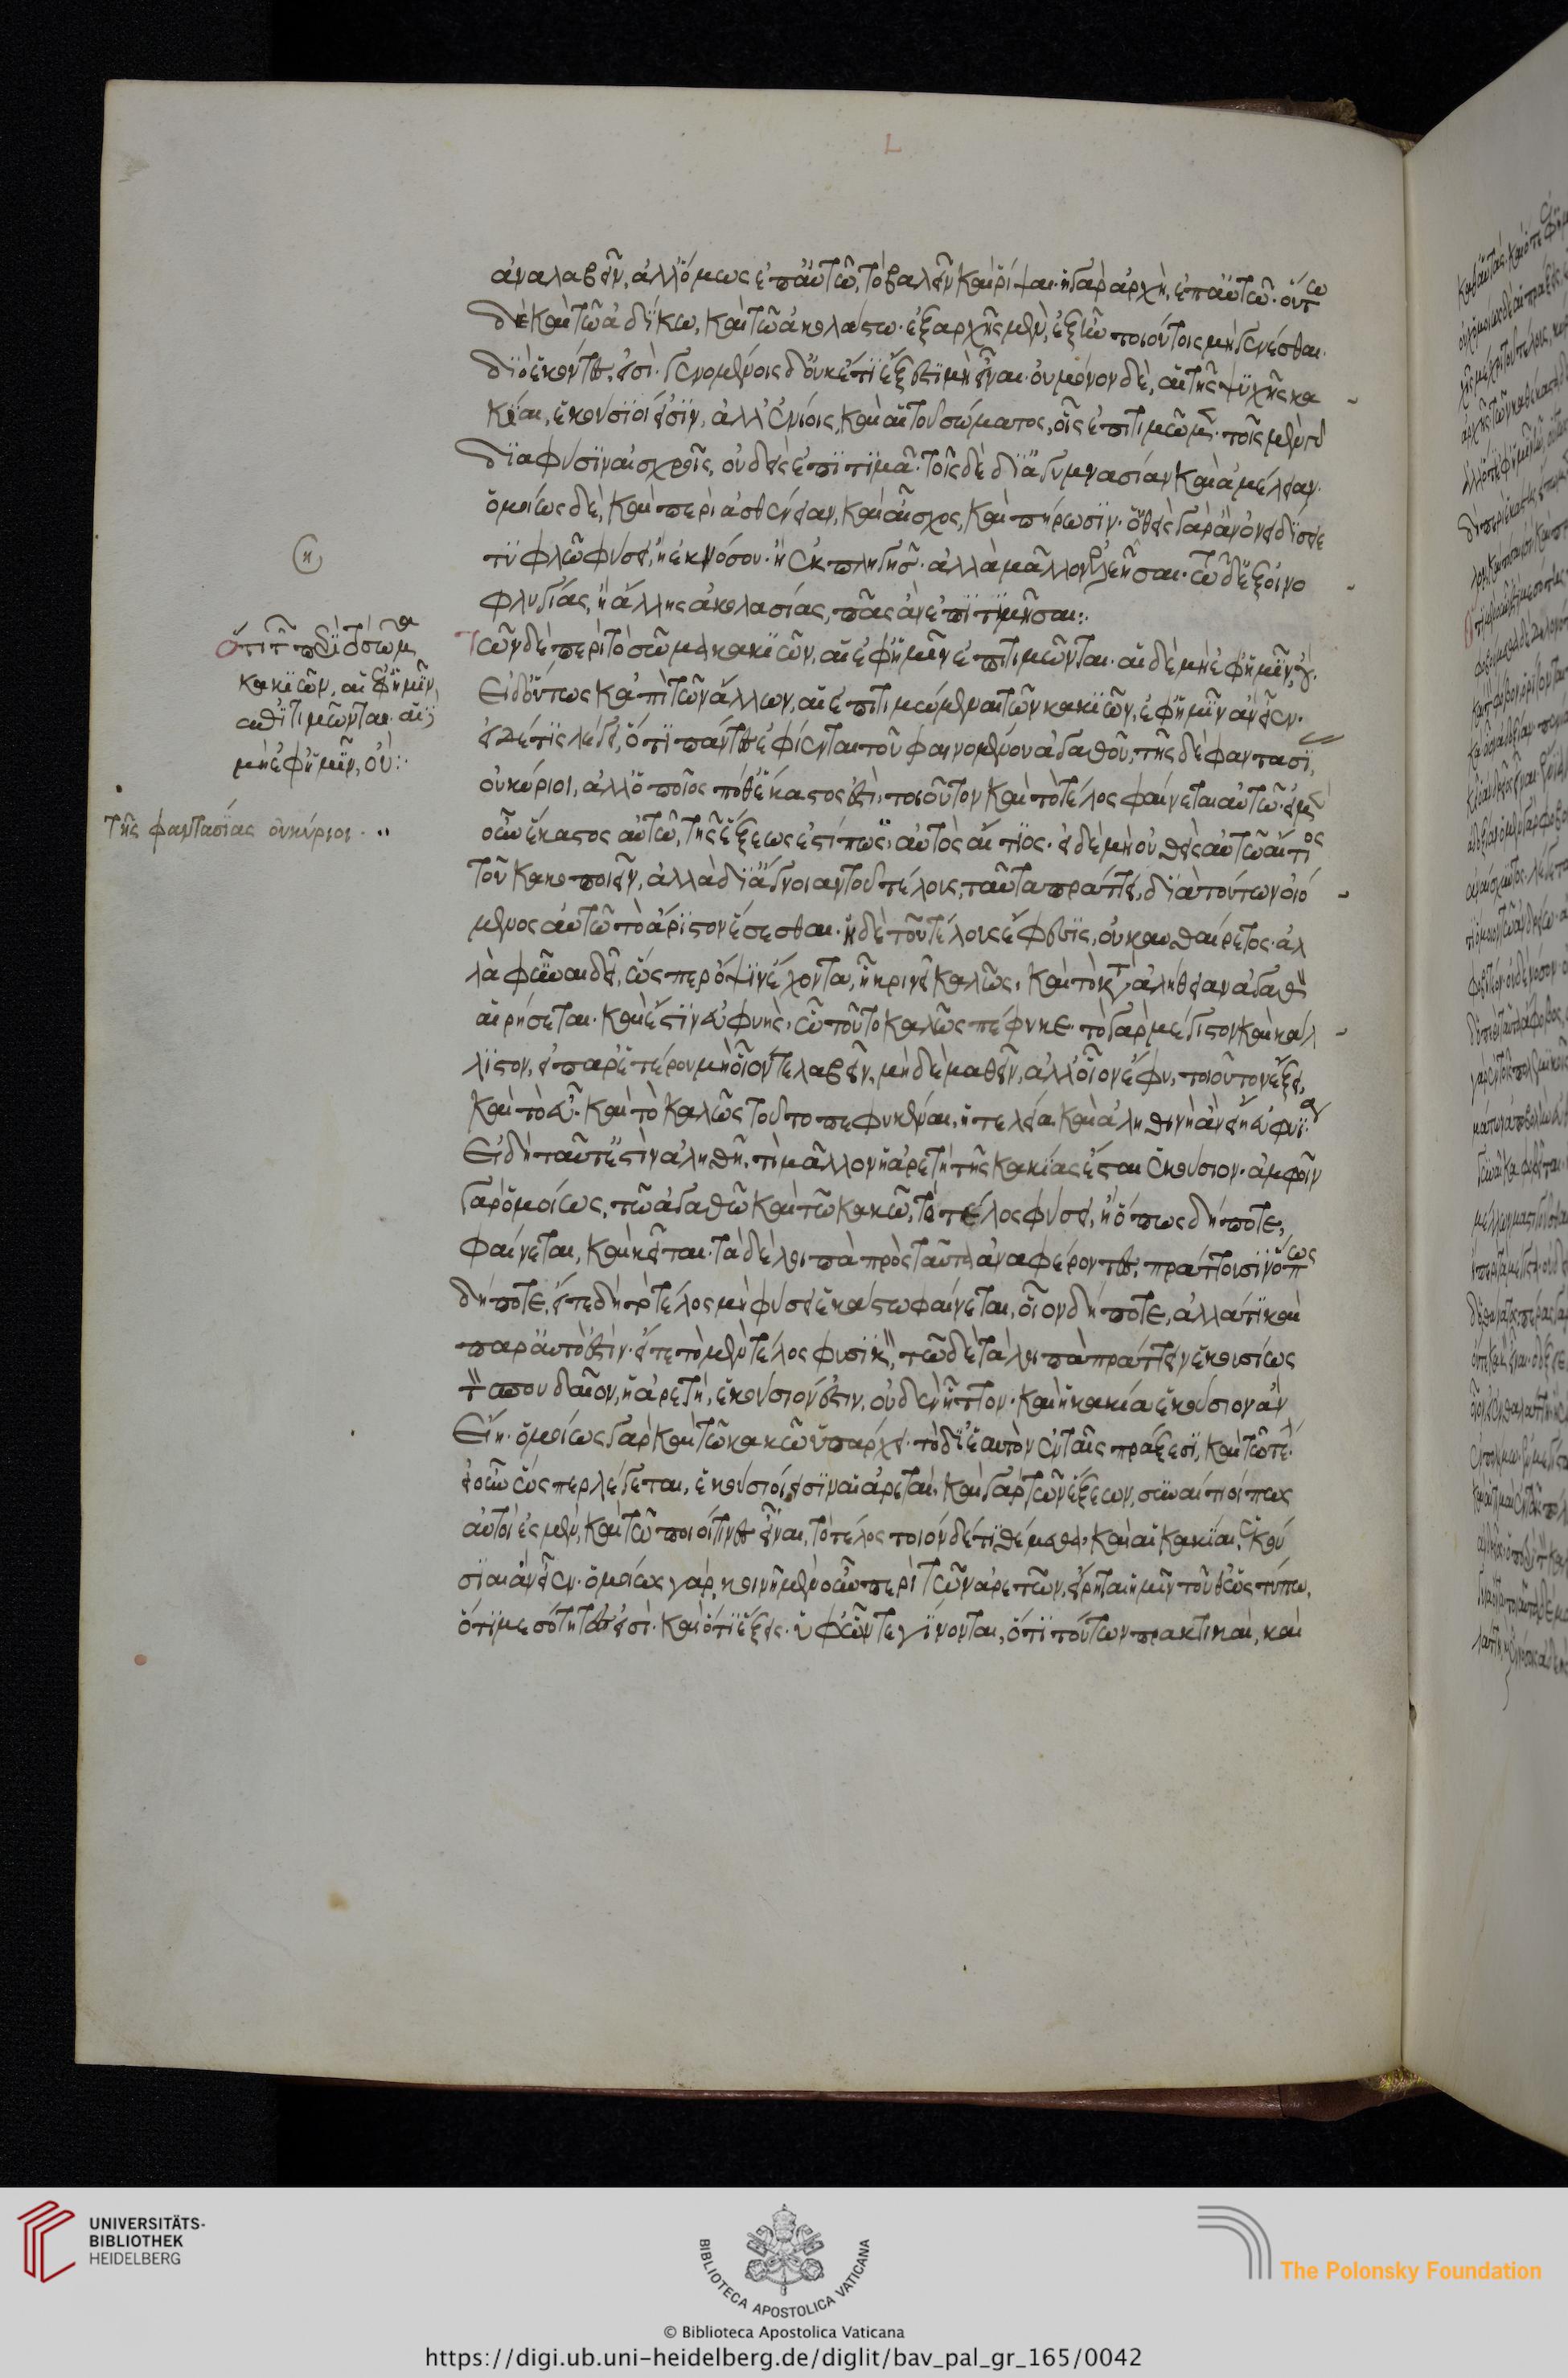 ἀναλαβεῖν, ἀλλ' ὅμως ἐπ' αὐτῶ, τὸ βαλεῖν καὶ ῥίψαι· ἡ γὰρ ἀρχὴ, ἐπ' αὐτῶ· οὕτω
δὲ καὶ τῶ ἀδίκω, καὶ τῶ ἀκολάστω· ἐξαρχῆς μὲν, ἐξῆν τοιούτοις μὴ γενέσθαι·
διὸ ἑκόντες εἰσὶ· γενομένοις δ' οὐκέτι ἔξεστι μὴ εἶναι· οὐ μόνον δὲ, αἱ τῆς ψυχῆς κα
κίαι, ἑκούσιοί εἰσιν, ἀλλ' ἐνίοις, καὶ αἱ τοῦ σώματος, οἷς ἐπιτιμῶμεν· τοῖς μὲν γὰρ
διὰ φύσιν αἰσχροῖς, οὐδεὶς ἐπιτιμᾶ· τοῖς δὲ δι' ἀγυμνασίαν καὶ ἀμέλειαν·
ὁμοίως δὲ, καὶ περὶ ἀσθένειαν, καὶ αἶσχος, καὶ πήρωσιν· οὐθεὶς γὰρ ἂν ὀνειδίσειε
τυφλῶ φύσει, ἢ ἐκ νόσου· ἢ ἐκ πληγῆς· ἀλλὰ μᾶλλον ἐλεῆσαι· τῶ δ' ἐξ οἰνο
φλυγίας, ἢ ἄλλης ἀκολασίας, πᾶς ἂν ἐπιτιμῆσαι:
Τῶν δὲ περὶ τὸ σῶμα κακιῶν, αἱ ἐφ' ἡμῖν ἐπιτιμῶνται· αἱ δὲ μὴ ἐφ' ἡμῖν, οὔ·
Εἰ δ' οὕτως κἀπὶ τῶν ἄλλων, αἱ ἐπιτιμώμεναι τῶν κακιῶν, ἐφ' ἡμῖν ἂν εἶεν·
εἰ δέ τις λέγει, ὅτι πάντες ἐφίενται τοῦ φαινομένου ἀγαθοῦ, τῆς δὲ φαντασί,
οὐ κύριοι, ἀλλ' ὁποῖος ποθ' ἕκαστος ἐστὶ, τοιοῦτον καὶ τὸ τέλος φαίνεται αὐτῶ· εἰ μὲν
οὖν ἕκαστος αὐτῶ, τῆς ἕξεως ἐστί πως αὐτὸς αἴτιος· εἰ δὲ μὴ οὐθεὶς αὐτῶ αἴτιος
τοῦ κακοποιεῖν, ἀλλὰ δι' ἄγνοιαν τοῦ τέλους, ταῦτα πράττει, διὰ τούτων οἰό
μενος αὐτῶ τὸ ἄριστον ἔσεσθαι· ἡ δὲ τοῦ τέλους ἔφεσις, οὐκ αὐθαίρετος· ἀλ
λὰ φῦναι δεῖ, ὥσπερ ὄψιν ἔχοντα, ἧ κρινεῖ καλῶς, καὶ τὸ κατ' ἀλήθειαν ἀγαθὸν
αἱρήσεται· καὶ ἔστιν εὐφυὴς, ὧ τοῦτο καλῶς πέφυκε· τὸ γὰρ μέγιστον καὶ κάλ
λιστον, ὃ παρ' ἑτέρου μὴ οἷόν τε λαβεῖν, μὴ δὲ μαθεῖν, ἀλλ' οἷον ἔφυ, τοιοῦτον ἕξει,
καὶ τὸ εὖ· καὶ τὸ καλῶς τοῦτο πεφυκέναι, ἡ τελεία καὶ ἀληθινὴ ἂν εἴη εὐφυΐα·
Εἰ δὴ ταῦτ' ἐστὶν ἀληθῆ, τί μᾶλλον ἡ ἀρετὴ τῆς κακίας ἔσται ἑκούσιον· ἀμφοῖν
γὰρ ὁμοίως, τῶ ἀγαθῶ καὶ τῶ κακῶ, τὸ τέλος φύσει, ἢ ὁπως δήποτε,
φαίνεται, καὶ κεῖται· τὰ δὲ λοιπὰ πρὸς ταῦτα ἀναφέροντες, πράττουσιν ὅπως
δήποτε, εἴτε δὴ τὸ τέλος μὴ φύσει ἑκάστω φαίνεται, οἷον δήποτε, ἀλλά τι καὶ
παρ' αὐτὸ ἐστίν· εἴτε τὸ μὲν τέλος φυσικὸν, τῶ δὲ τὰ λοιπὰ πράττειν ἑκουσίως
τὸν σπουδαῖον, ἡ ἀρετὴ, ἑκούσιόν ἐστιν, οὐδὲν ἧττον· καὶ ἡ κακία ἑκούσιον ἂν
Εἴη· ὁμοίως γὰρ καὶ τῶ κακῶ ὑπάρχει· τὸ δι' ἑαυτὸν ἐν ταῖς πράξεσι, καὶ τῶ τέλει·
εἰ οὖν ὥσπερ λέγεται, ἑκούσιοί εἰσιν αἱ ἀρεταὶ, καὶ γὰρ τῶν ἕξεων, συναίτιοί πως
αὐτοί ἐσμεν, καὶ τῶ ποιοί τινες εἶναι, τὸ τέλος τοιόνδε τιθέμεθα, καὶ αἱ κακίαι, ἑκού
σιαι ἂν εἶεν· ὁμοίως γάρ, κοινῆ μὲν οὖν περὶ τῶν ἀρετῶν, εἴρηται ἡμῖν τοῦθ' ὡς τύπω,
ὅτι μεσότητές εἰσι· καὶ ὅτι ἕξεις· ὑφ' ὧν τε γίνονται, ὅτι τούτων πρακτικαὶ, καὶ
η
Ὅτι τῶν περὶ τὸ σῶμα
κακιῶν, αἱ ἐφ' ἡμῖν,
ἐπιτιμῶνται· αἱ δὲ
μὴ ἐφ' ἡμῖν, οὐ:
Τῆς φαντασίας οὐ κύριοι
UNIVERSITÄTS-
BIBLIOTHEK
HEIDELBERG
BIBLIOTECA APOSTOLICA VATICANA
The Polonsky Foundation
© Biblioteca Apostolica Vaticana
https://digi.ub.uni-heidelberg.de/diglit/bav_pal_gr_165/0042